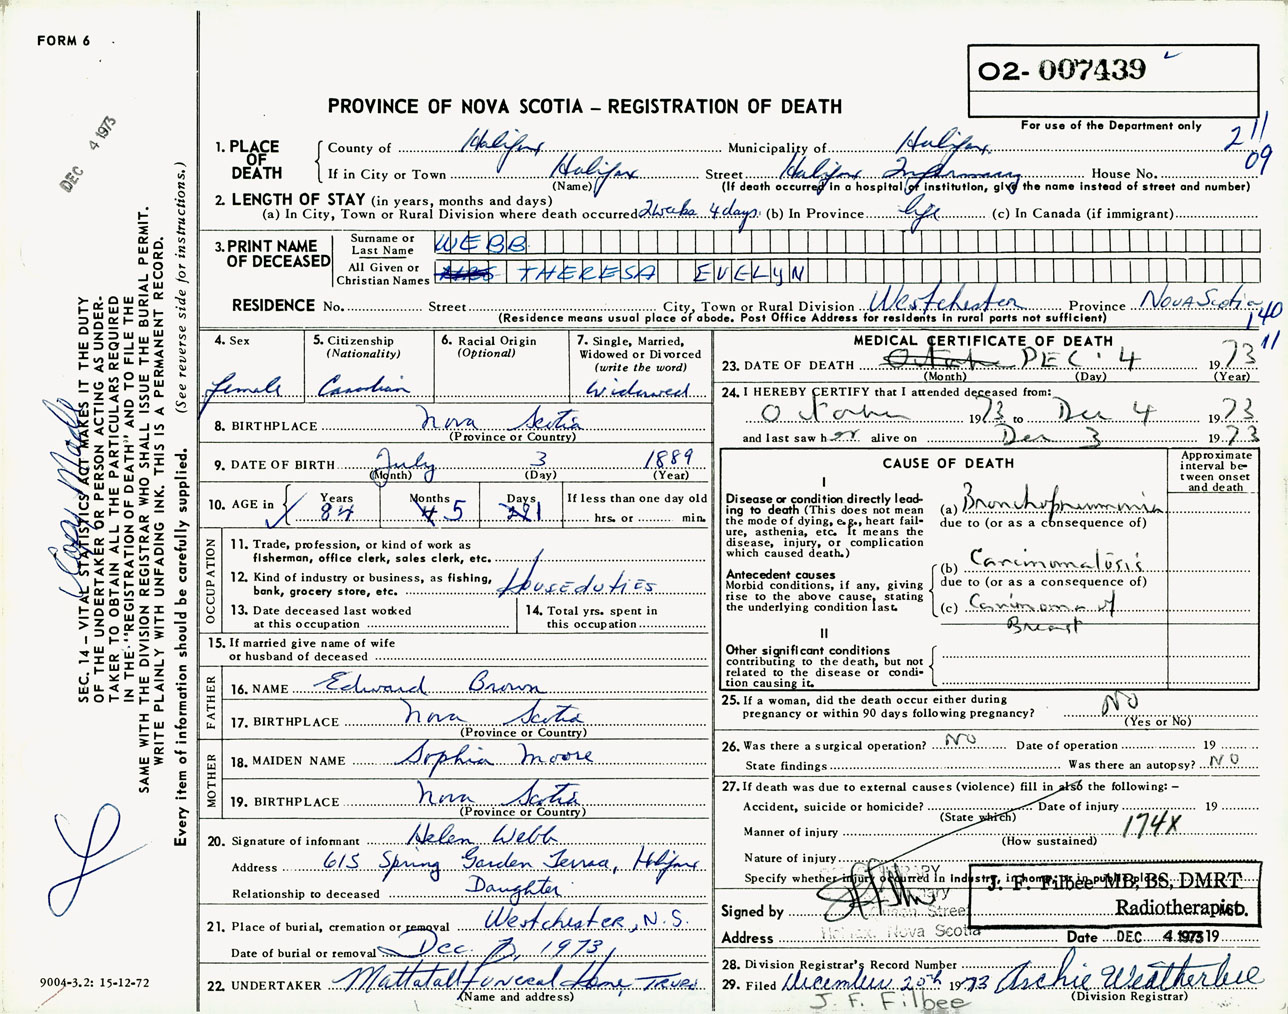 FORM 6
DEC 4 1973
O2- 007439
PROVINCE OF NOVA SCOTIA – REGISTRATION OF DEATH
For use of the Department only
2 11
09
1. PLACE OF DEATH
County of Halifax Municipality of Halifax
If in City or Town Halifax Street Halifax Infirmary House No.
(Name) (If death occurred in a hospital or institution, give the name instead of street and number)
2. LENGTH OF STAY (in years, months and days)
(a) In City, Town or Rural Division where death occurred 2 weeks 4 days (b) In Province life (c) In Canada (if immigrant)
3. PRINT NAME OF DECEASED
Surname or Last Name WEBB
All Given or Christian Names THERESA EVELYN
RESIDENCE No. Street City, Town or Rural Division Westchester Province NOVA Scotia
(Residence means usual place of abode. Post Office Address for residents in rural parts not sufficient)
140
11
4. Sex
female
5. Citizenship
(Nationality)
Canadian
6. Racial Origin
(Optional)
7. Single, Married,
Widowed or Divorced
(write the word)
Widowed
8. BIRTHPLACE Nova Scotia
(Province or Country)
9. DATE OF BIRTH July 3 1889
(Month) (Day) (Year)
10. AGE in Years Months Days If less than one day old
84 5 1 hrs. or min.
OCCUPATION
11. Trade, profession, or kind of work as
fisherman, office clerk, sales clerk, etc.
12. Kind of industry or business, as fishing,
bank, grocery store, etc. HOUSEDUTIES
13. Date deceased last worked
at this occupation
14. Total yrs. spent in
this occupation
15. If married give name of wife
or husband of deceased
FATHER
16. NAME Edward Brown
17. BIRTHPLACE Nova Scotia
(Province or Country)
MOTHER
18. MAIDEN NAME Sophia Moore
19. BIRTHPLACE Nova Scotia
(Province or Country)
20. Signature of informant Helen Webb
Address 615 Spring Garden Terrace, Halifax
Relationship to deceased Daughter
21. Place of burial, cremation or removal Westchester, N.S.
Date of burial or removal Dec 7, 1973
22. UNDERTAKER Mattatall Funeral Home, Truro
(Name and address)
MEDICAL CERTIFICATE OF DEATH
23. DATE OF DEATH DEC. 4 1973
(Month) (Day) (Year)
24. I HEREBY CERTIFY that I attended deceased from:
October 1973 to Dec 4 1973
and last saw her alive on Dec 3 1973
CAUSE OF DEATH
Approximate
interval be-
tween onset
and death
I
Disease or condition directly lead-
ing to death (This does not mean
the mode of dying, e.g., heart fail-
ure, asthenia, etc. It means the
disease, injury, or complication
which caused death.)
(a) Bronchopneumonia
due to (or as a consequence of)
Antecedent causes
Morbid conditions, if any, giving
rise to the above cause, stating
the underlying condition last.
(b) Carcinomatosis
due to (or as a consequence of)
(c) Carcinoma of
Breast
II
Other significant conditions
contributing to the death, but not
related to the disease or condi-
tion causing it.
25. If a woman, did the death occur either during
pregnancy or within 90 days following pregnancy? NO
(Yes or No)
26. Was there a surgical operation? NO Date of operation 19
State findings Was there an autopsy? NO
27. If death was due to external causes (violence) fill in also the following: –
Accident, suicide or homicide? Date of injury 19
(State which)
Manner of injury 174X
(How sustained)
Nature of injury
Specify whether injury occurred in Industry, in home, or in public place
J. F. Filbee MB, BS, DMRT
Radiotherapist
M.D.
Signed by
Address Halifax, Nova Scotia Date DEC 4 1973 19
28. Division Registrar's Record Number
29. Filed December 20th 1973 Archie Weatherbee
(Division Registrar)
J. F. Filbee
SEC. 14 – VITAL STATISTICS ACT MAKES IT THE DUTY
OF THE UNDERTAKER OR PERSON ACTING AS UNDER-
TAKER TO OBTAIN ALL THE PARTICULARS REQUIRED
IN THE "REGISTRATION OF DEATH" AND TO FILE THE
SAME WITH THE DIVISION REGISTRAR WHO SHALL ISSUE THE BURIAL PERMIT.
WRITE PLAINLY WITH UNFADING INK. THIS IS A PERMANENT RECORD.
Every item of information should be carefully supplied. (See reverse side for instructions.)
Copy Made
9004-3.2: 15-12-72